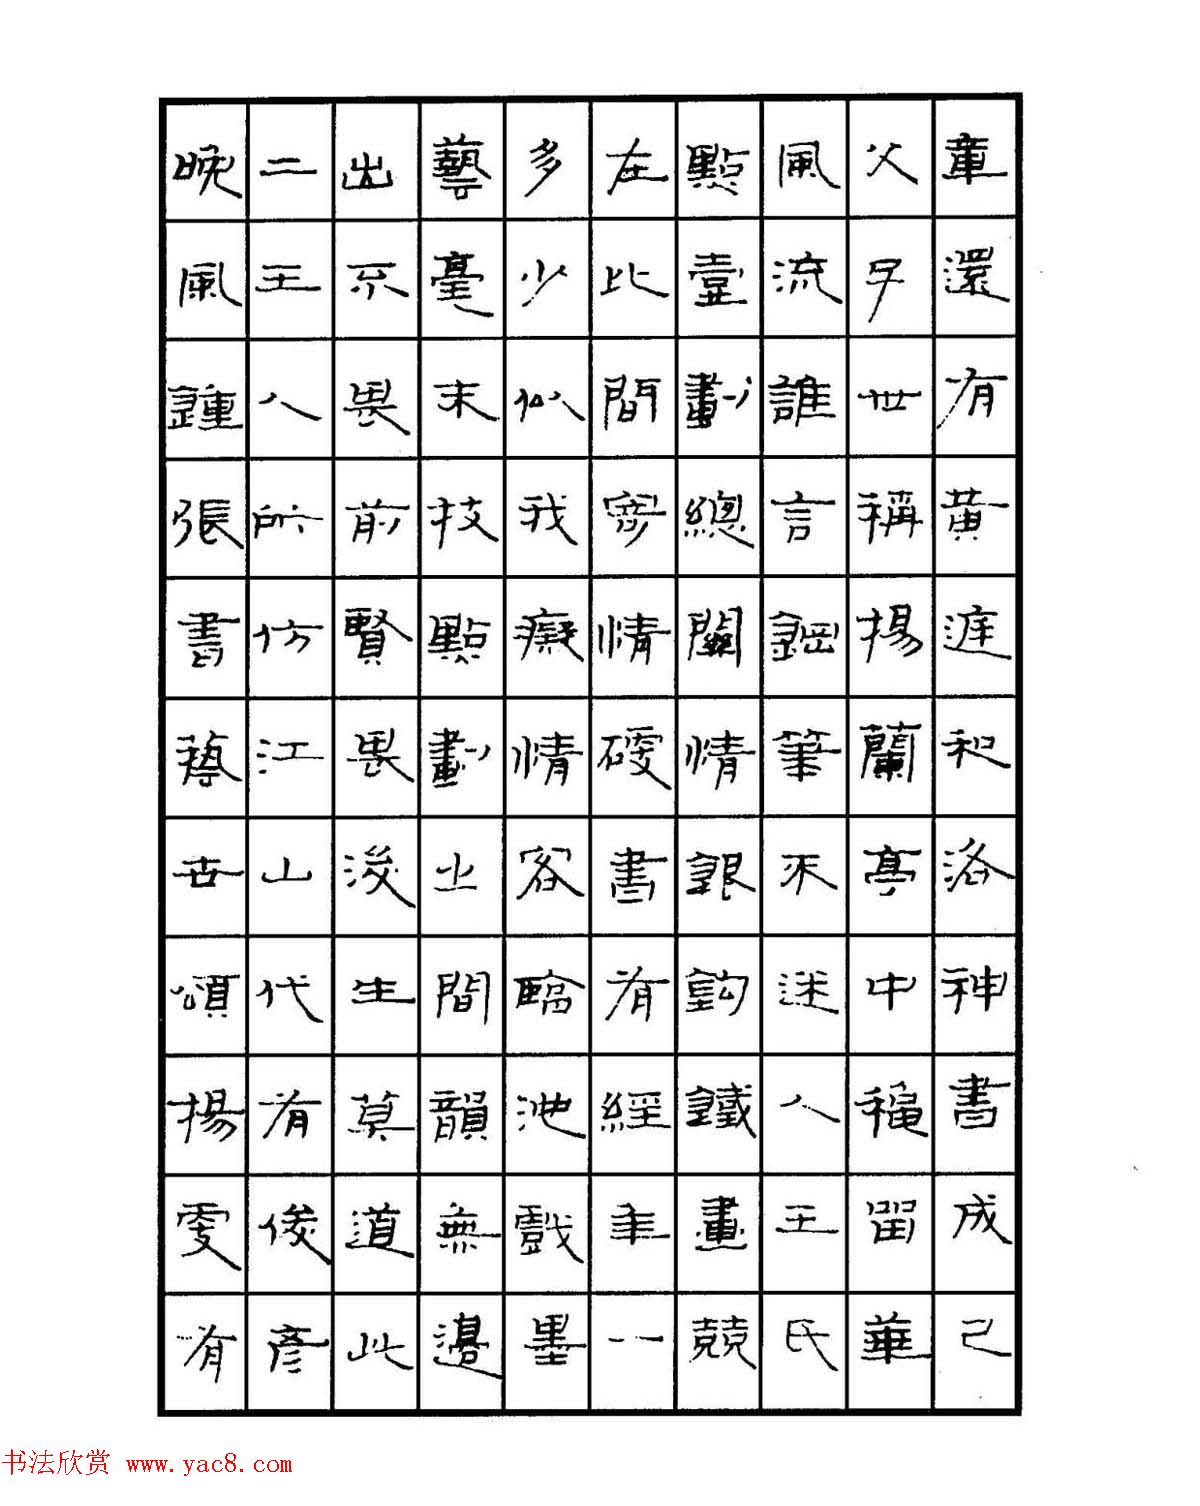 章還有黄庭和洛神書成已
父子世稱揚蘭亭中龝留華
風流誰言鋼筆不迷人王氏
點壹劃總關情銀鈎鐵畫競
在比間寄情硬書有經年一
多少似我癡情客臨池戲墨
藝毫末技點劃之間韻無邊
出不畏前賢畏後生莫道此
二王人所仿江山代有俊彦
晚風鍾張書藝古頌揚更有
书法欣赏 www.yac8.com